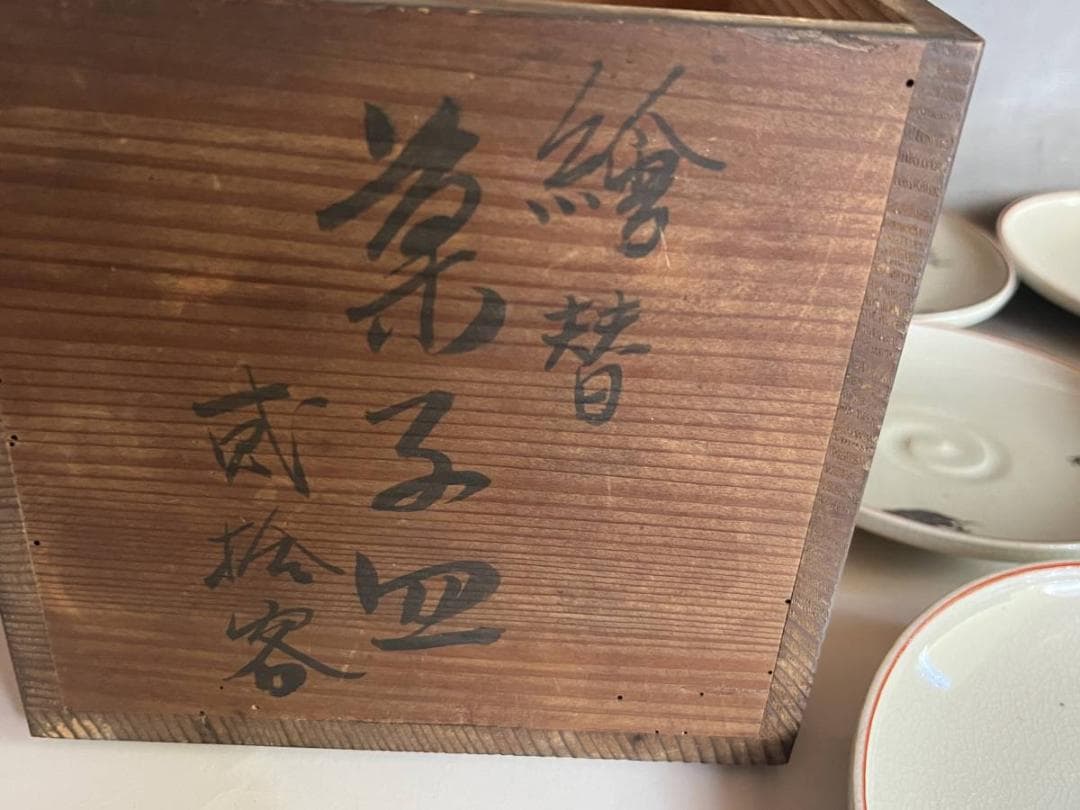 繪替
菓子皿
貳拾客